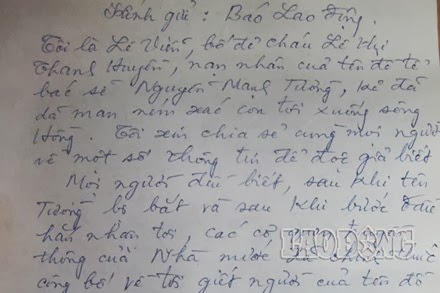 Kính gửi : Báo Lao động.
Tôi là Lê Viễn, bố đẻ cháu Lê Thị
Thanh Huyền, nạn nhân của tên đồ tể
bác sĩ Nguyễn Mạnh Tường, kẻ đã
dã man ném xác con tôi xuống sông
Hồng. Tôi xin chia sẻ cùng mọi người
về một số thông tin để độc giả biết
Mọi người đều biết, sau khi tên
Tường bị bắt và sau khi bước
nhận tội, các cơ
thông của Nhà nước
công bố về tội giết người của tên đồ